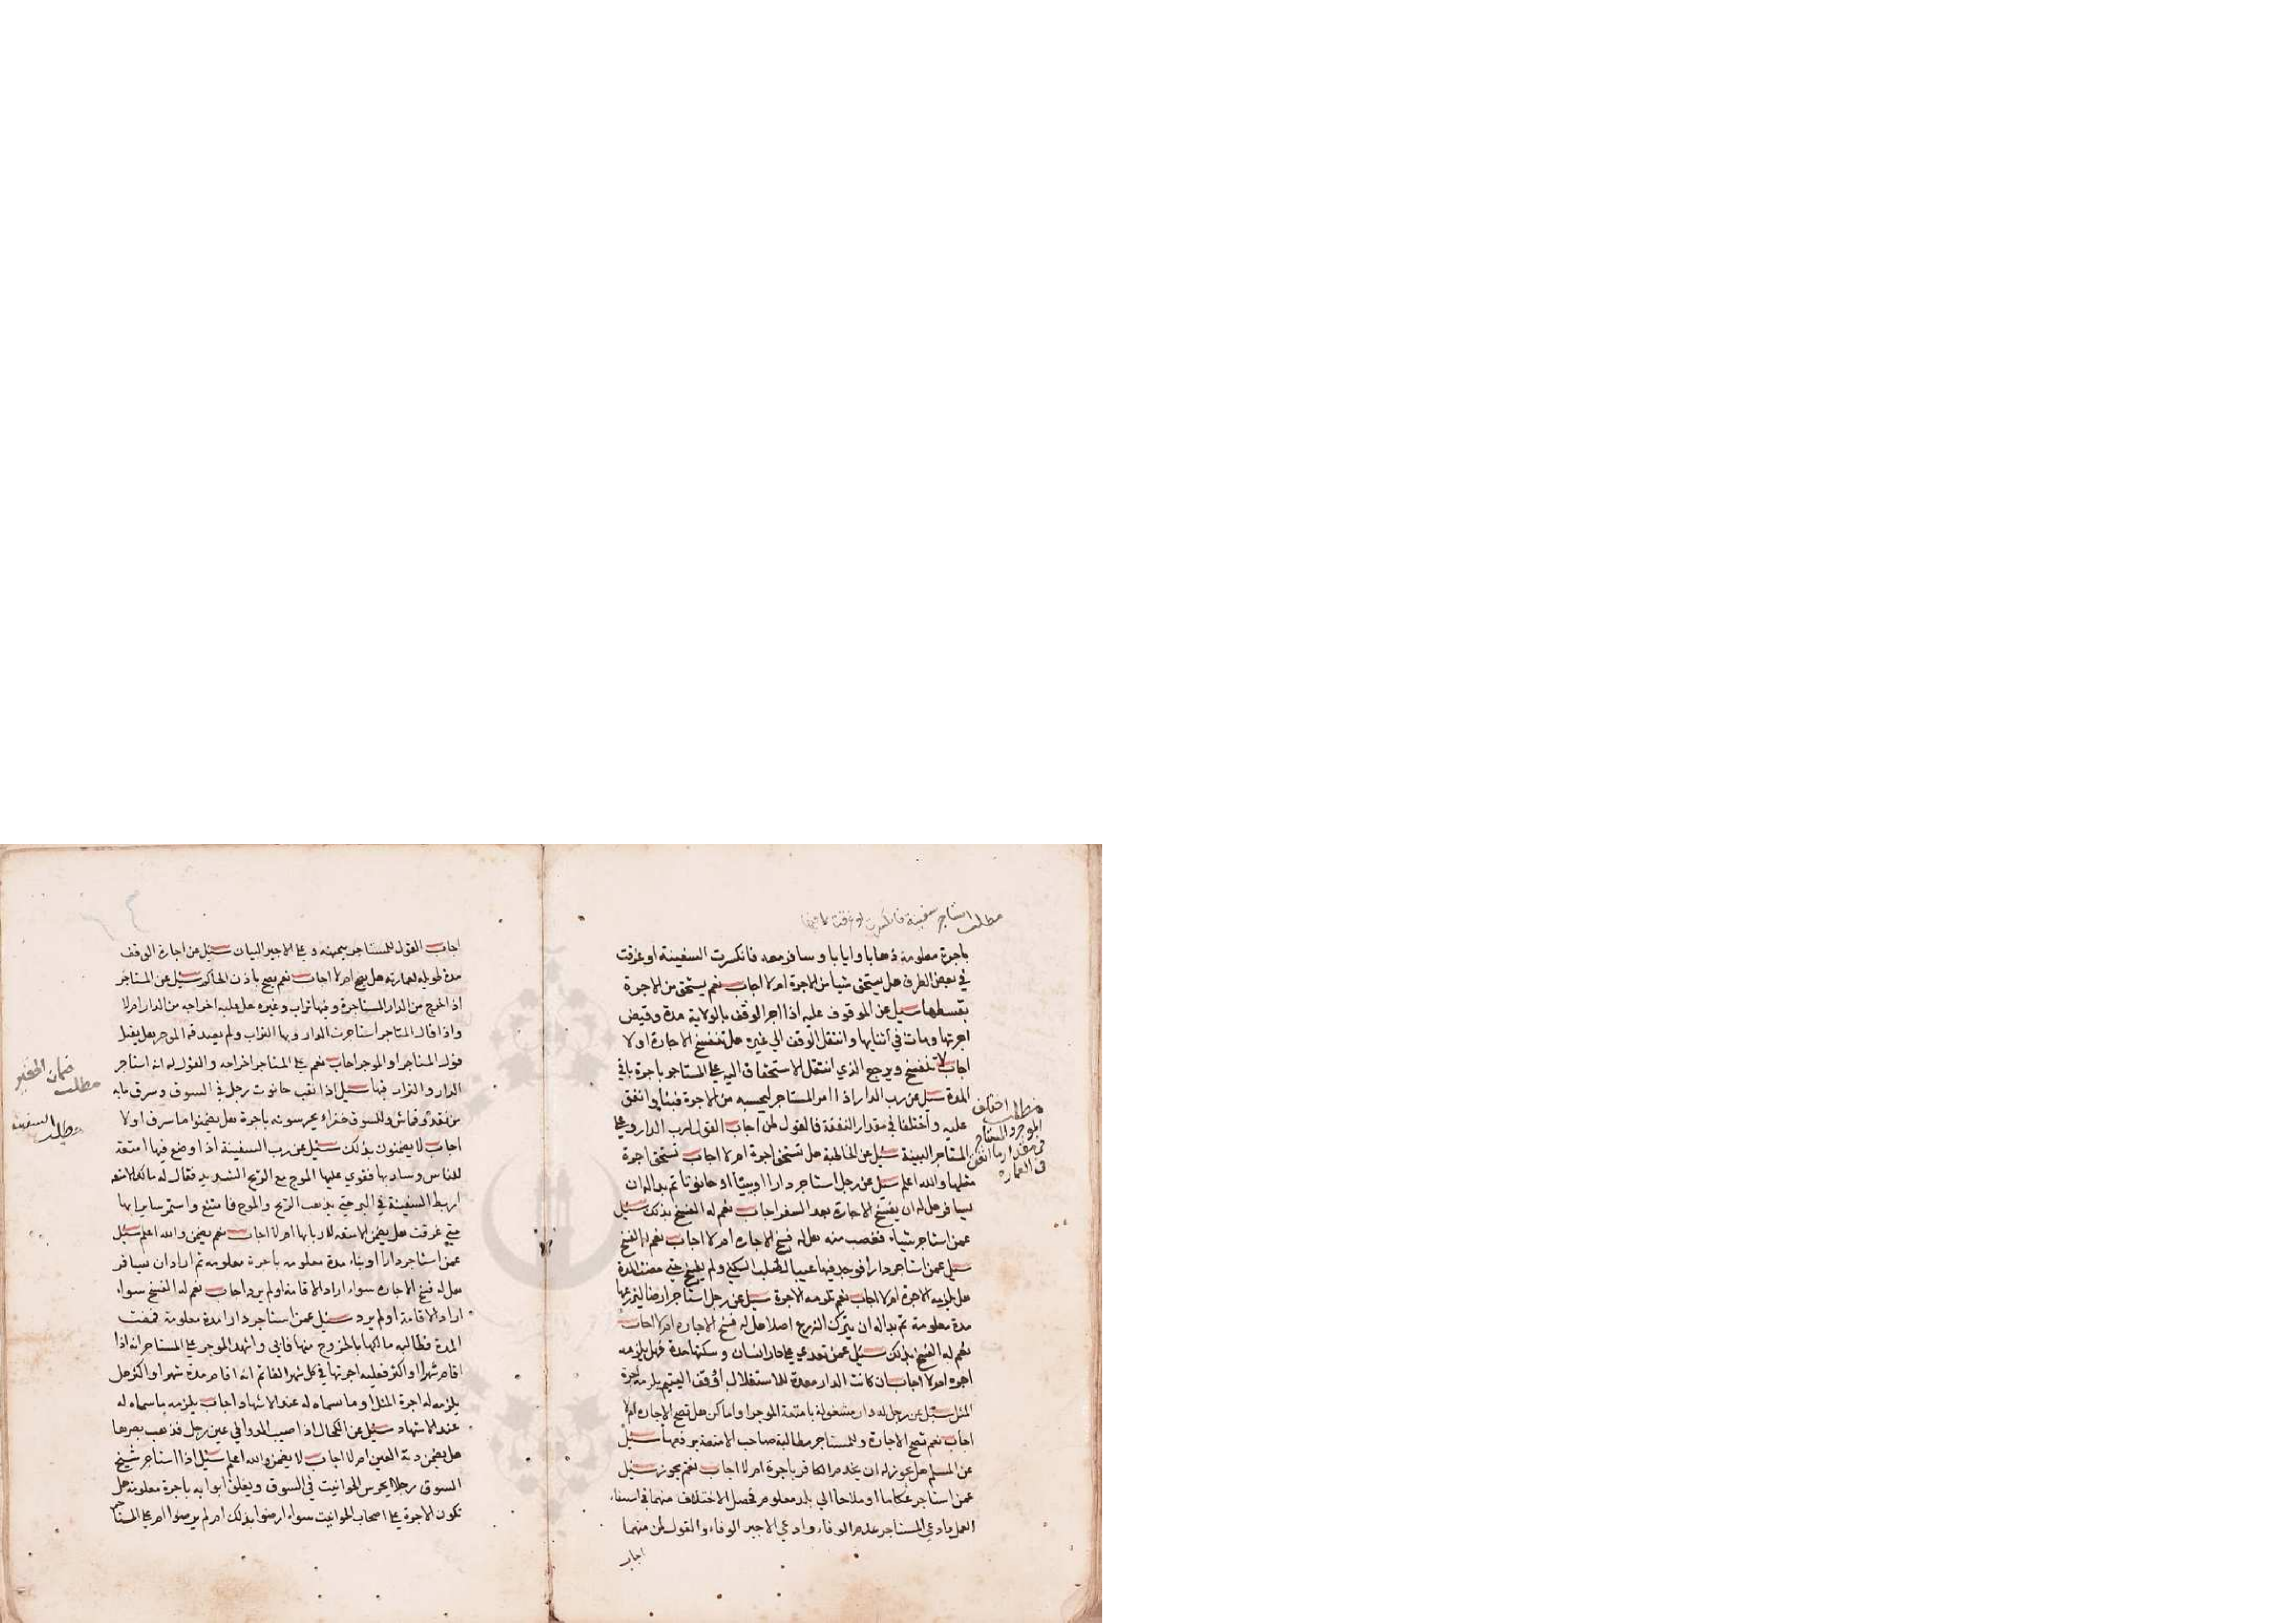 مطلب استاجر سفينة فانكسرت او غرقت
باجرة معلومة ذهابا وايابا وسافر معه فانكسرت السفينة او غرقت
في بعض الطرق هل يستحق شيا من الاجرة ام لا اجاب نعم يستحق من الاجرة
بقسطها سيل عن الموقوف عليه اذا اجر الوقف بالولاية مدة وقبض
اجرتها ومات في اثنايها وانتقل الوقف الي غيره هل تنفسخ الاجارة او لا
اجاب لا تنفسخ ويرجع الذي انتقل الاستحقاق اليه علي المستاجر باجرة باقي
المدة سيل عن رب الدار اذا امر المستاجر ليحسبه من الاجرة فبنا وانفق
عليه واختلفا في مقدار النفقة فالقول لمن اجاب القول لرب الدار وعلي
المستاجر البينة سيل عن الخاطبة هل تستحق اجرة ام لا اجاب تستحق اجرة
مثلها والله اعلم سيل عن رجل استاجر دارا او بيتا او حانوتا ثم بداله ان
يسافر هل له ان يفسخ الاجارة بعد السفر اجاب نعم له الفسخ بذلك سيل
عمن استاجر شياء فغصب منه هل له فسخ الاجاره ام لا اجاب نعم له الفسخ
سيل عمن استاجر دارا فوجد فيها عيبا السكني ولم يفسخ حتي مضت المدة
هل يلزمه الاجرة ام لا اجاب نعم تلزمه الاجرة سيل عن رجل استاجر ارضا ليزرعها
مدة معلومة ثم بداله ان يترك الزرع اصلا هل له فسخ الاجاره ام لا اجاب
نعم له الفسخ بذلك سيل عمن تعدي علي دار انسان وسكنها مدة فهل يلزمه
اجره ام لا اجاب ان كانت الدار معدة للاستغلال او وقف اليتيم يلزمه اجرة
المثل سيل عن رجل له دار مشغولة بامتعة الموجر او اماكن هل تصح الاجاره ام لا
اجاب نعم تصح الاجارة وللمستاجر مطالبة صاحب الامتعة برفعها سيل
عن المسلم هل يجوز له ان يخدم الكافر باجرة ام لا اجاب نعم يجوز سيل
عمن استاجر عكاما او ملاحا الي بلد معلوم فحصل الاختلاف منهما في استيفاء
العمل فادعي المستاجر عدم الوفاء وادعي الاجير الوفاء والقول لمن منهما
اجاب
مطلب اختلف
الموجر والمستاجر
في مقدار ما انفق
في العماره
اجاب القول للمستاجر بيمينه وعلي الاجير البيان سيل عن اجارة الوقف
مدة طويله لعمارته هل يصح ام لا اجاب نعم يصح باذن الحاكم سيل عن المستاجر
اذا خرج من الدار المستاجرة وفيها تراب وغيره هل عليه اخراجه من الدار ام لا
واذا قال المستاجر استاجرت الدار وبها التراب ولم يصدقه الموجر هل يقبل
قول المستاجر او الموجر اجاب نعم علي المستاجر اخراجه والقول له انه استاجر
الدار والتراب فيها سيل اذا نقب حانوت رجل في السوق وسرق مابه
من نقد وقماش وللسوق خفراء يحرسونه باجرة هل يضمنوا ما سرق او لا
اجاب لا يضمنون بذلك سيل عن رب السفينة اذا وضع فيها امتعة
للناس وسار بها فقوي عليها الموج مع الريح الشديد فقال له مالك الامتعه
اربط السفينة في البر حتي يذهب الريح والموج فامتنع واستمر سايرا بها
حتي غرقت هل يضمن الامتعه لاربابها ام لا اجاب نعم يضمن والله اعلم سيل
عمن استاجر دارا او بناء مدة معلومه باجرة معلومه ثم اراد ان يسافر
هل له فسخ الاجاره سواء اراد الاقامة او لم يرد اجاب نعم له الفسخ سواء
اراد الاقامة او لم يرد سيل عمن استاجر دارا مدة معلومة فمضت
المدة فطالبه مالكها بالخروج منها فابي واشهد الموجر علي المستاجر انه اذا
اقام شهرا او اكثر فعليه اجرتها في كل شهر الفا ثم انه اقام مدة شهر او اكثر هل
يلزمه له اجرة المثل او ما سماه له عند الاشهاد اجاب يلزمه ما سماه له
عند الاشهاد سيل عن الكحال اذا صب الدوا في عين رجل فذهب بصرها
هل يضمن دية العين ام لا اجاب لا يضمن والله اعلم سيل اذا استاجر شيخ
السوق رجلا يحرس الحوانيت في السوق ويغلق ابوابه باجرة معلومة هل
تكون الاجرة علي اصحاب الحوانيت سواء رضوا بذلك ام لم يرضوا ام علي المستاجر
مطلب ضمان الخفير
مطلب السفينة